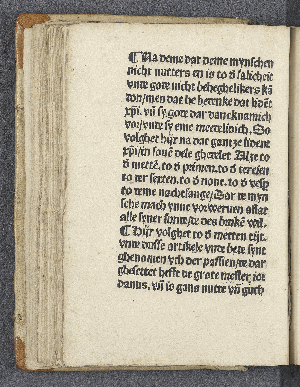 ¶ Na deme dat deme mynschen
nicht nutters en is to d̄ salicheit
vnde gote nicht beheghelikers kā
don / men dat he betenke dat lidēt
xp̄i. vn̄ sy gode dar danknamich
vor / vnde sy eme medelidich. So
volghet hijr na dat gantze lident
xp̄i / in souē dele ghedelet. Alze to
d̄ mettē. to d̄ primen. to d̄ tercien
to der sexten. to d̄ none. to d̄ vesp̄
to deme nachtsange / Dar de myn
sche mach ynne vorweruen aflat
alle syner sunde / de des
¶ Hijr volghet to d̄ metten tijt.
vnde dusse artikele vnde bede synt
ghenomen vth der passien / de dar
ghesettet hefft de grote mester ior
danus. vn̄ is gans nutte vn̄ guth